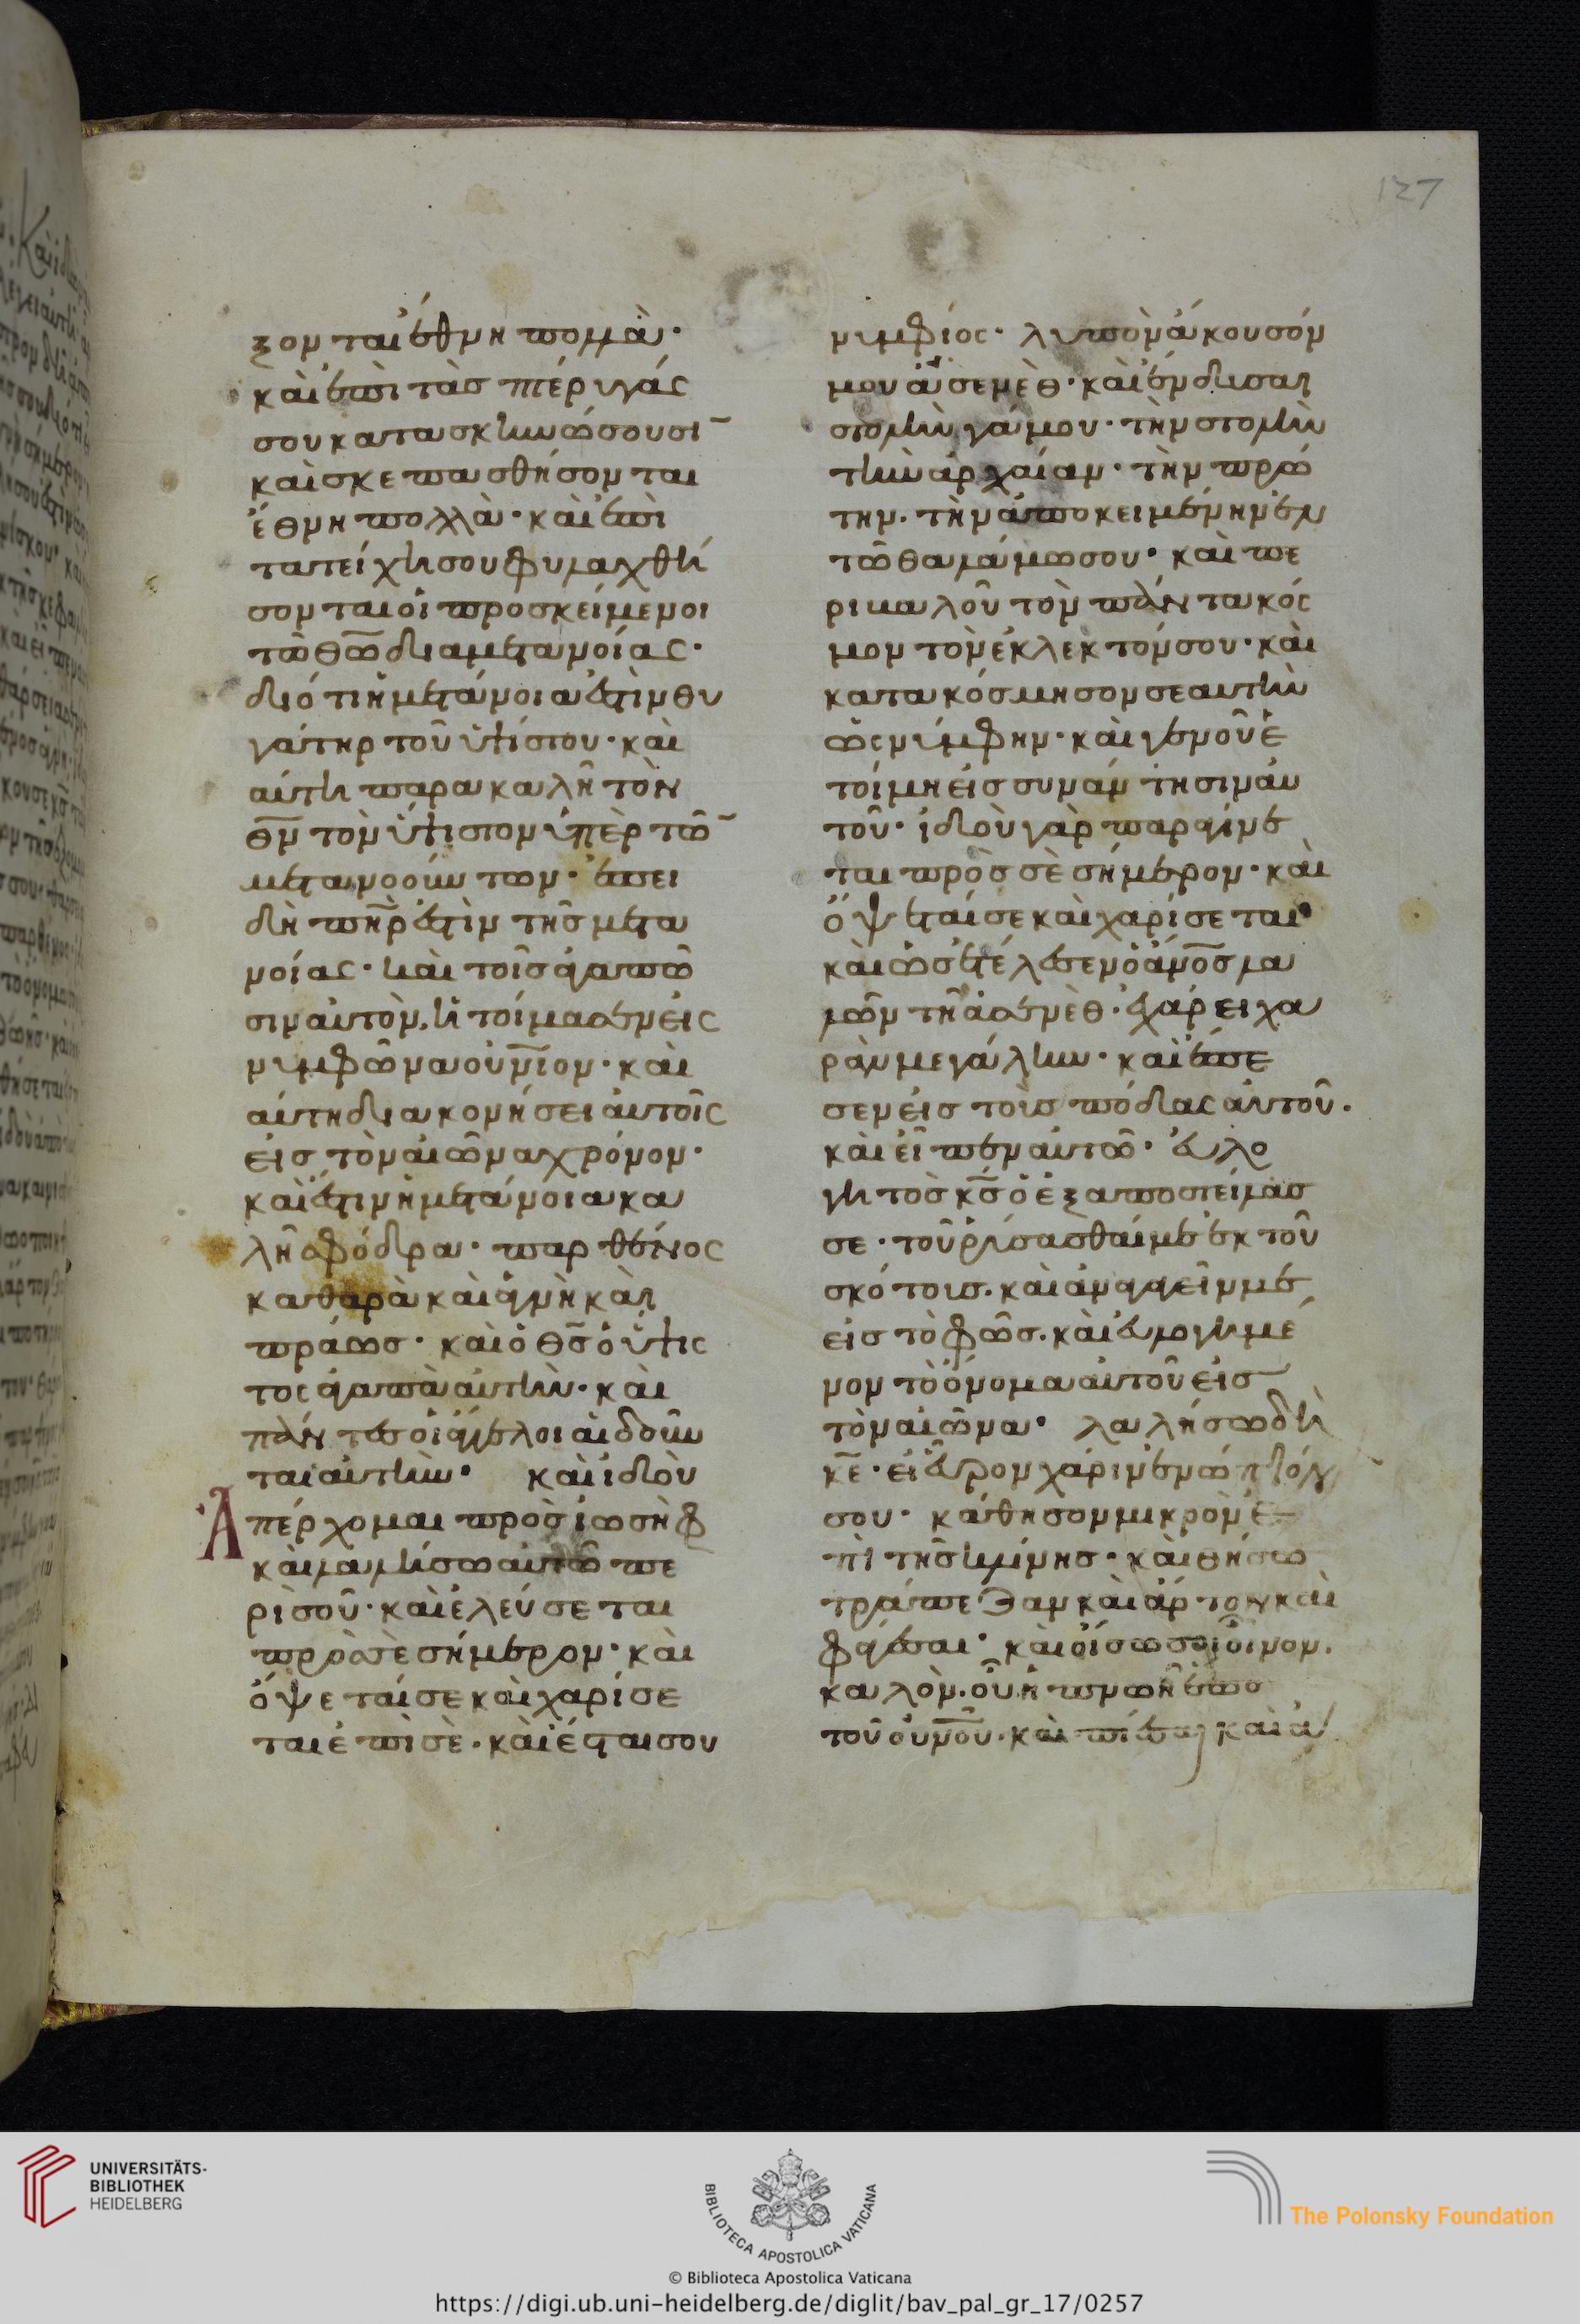 127
ξονται έθνη πολλὰ·
καὶ ἐπὶ τὰσ πτέρυγάς
σου κατασκηνώσουσι
καὶ σκεπασθήσονται
ἔθνη πολλὰ· καὶ ἐπὶ
τα τείχη σου φυλαχθή
σονται οἱ προσκείμενοι
τῶ θῶ δια μετανοίας·
διότι ἡ μετάνοια ἐστὶν θυ
γάτηρ τοῦ ὑψίστου· καὶ
αὐτη παρακαλῆ τὸν
θν τὸν ὑψιστον ὑπὲρ τῶ
μετανοούντων· ἐπει
δὴ πηρ ἐστὶν τῆσ μετα
νοίας· καὶ τοῖσ ἀγαπῶ
σιν αὐτὸν, ἡτοίμασεν εἰς
νυμφῶνα οὐνιον· καὶ
αὐτη διακονήσει αὐτοῖς
εἰσ τὸν αἰῶνα χρόνον·
καὶ ἔστιν ἡ μετάνοια κα
λῆ σφόδρα· παρθένος
καθαρὰ καὶ ἁγνὴ καὶ
πράωσ· καὶ ὁ θσ ὁ ὕψις
τος ἀγαπὰ αὐτὴν· καὶ
πάντεσ οἱ ἄγγελοι αἰδοῦν
ται αὐτὴν· καὶ ἰδοὺ
Ἀπέρχομαι πρὸσ ἰωσὴφ
καὶ λαλήσω αὐτῶ πε
ρὶ σοῦ· καὶ ἐλεύσεται
πρὸσ σὲ σήμερον· καὶ
ὄψεται σε καὶ χαρίσε
ται ἐπὶ σὲ· καὶ ἔσται σου
νυμφίος· λυπὸν ἄκουσόν
μου ἀσενὲθ· καὶ ἔνδυσαι
στολὴν γάμου· τὴν στολὴν
τὴν ἀρχαίαν· τὴν πρώ
την· τὴν ἀποκειμένην ἐν
τῶ θαλάμω σου· καὶ πε
ρικαλοῦ τὸν πάντα κός
μον τὸν ἐκλεκτόν σου· καὶ
κατακόσμησον σεαυτὴν
ὡς νύμφην· καὶ γενοῦ ἑ
τοίμη εἰσ συνάντησιν αὐ
τοῦ· ἰδοὺ γὰρ παραγίνε
ται πρὸσ σὲ σήμερον· καὶ
ὄψεταί σε καὶ χαρίσεται·
καὶ ὡσ ἐτέλεσεν ὁ ἀνοσ λα
λῶν τῆ ἀσενὲθ· ἐχάρει χα
ρὰν μεγάλην· καὶ ἔπε
σεν εἰσ τοὺσ πόδας αὐτοῦ·
καὶ εἶπεν αὐτῶ· εὐλο
γητὸσ κσ ὁ ἐξαποστείλασ
σε· τοῦ ῥύσασθαί με ἐκ τοῦ
σκότουσ· καὶ ἀναγαγεῖν με
εἰσ τὸ φῶσ· καὶ εὐλογημέ
νον τὸ ὄνομα αὐτοῦ εἰσ
τὸν αἰῶνα· λαλήσω δὴ
κε· εἰ εὗρον χάριν ἐνώπιόν
σου· κάθησον μικρὸν ἐ
πὶ τῆσ κλίνησ· καὶ θήσω
τράπεζαν καὶ ἄρτον καὶ
φάγεσαι· καὶ οἴσω σοι οἶνον·
καλὸν· οὗ ἡ πνοὴ ἕωσ
τοῦ οὐνοῦ· καὶ πίεσαι καὶ ἀ
UNIVERSITÄTS-
BIBLIOTHEK
HEIDELBERG
BIBLIOTECA APOSTOLICA VATICANA
The Polonsky Foundation
© Biblioteca Apostolica Vaticana
https://digi.ub.uni-heidelberg.de/diglit/bav_pal_gr_17/0257